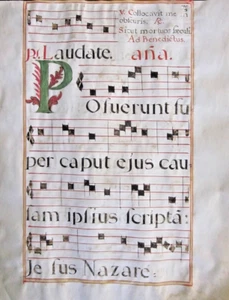 ℣. Collocavit me in
obscuris. ℟.
Sicut mortuos seculi.
Ad Benedictus.
ps. Laudate. aña.
Posuerunt su
per caput ejus cau
sam ipsius scriptã:
Jesus Nazare: